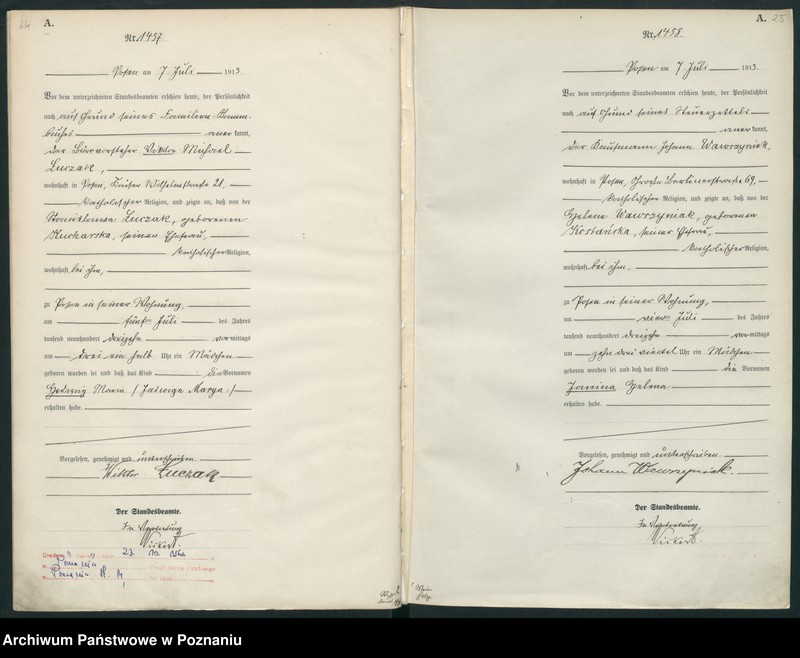 24 A.
Nr. 1457
Posen am 7. Juli 1913
Vor dem unterzeichneten Standesbeamten erschien heute, der Persönlichkeit
nach auf Grund seines Familien-Stamm-
buches anerkannt,
der Bürovorsteher Viktor Michael
Luczak,
wohnhaft in Posen, Kaiser Wilhelmstraße 21,
katholischer Religion, und zeigte an, daß von der
Stanislawa Luczak, geborenen
Kucharska, seiner Ehefrau,
katholischer Religion,
wohnhaft bei ihm,
zu Posen in seiner Wohnung,
am fünf Juli des Jahres
tausend neunhundert dreizehn vormittags
um drei ein halb Uhr ein Mädchen
geboren worden sei und daß das Kind die Vornamen
Hedwig Maria (Jadwiga Marya:)
erhalten habe.
Vorgelesen, genehmigt und unterschrieben.
Wiktor Luczak
Der Standesbeamte.
In Vertretung
A. 25
Nr. 1458.
Posen am 7 Juli 1913.
Vor dem unterzeichneten Standesbeamten erschien heute, der Persönlichkeit
nach auf Grund seines Steuerzettels
anerkannt,
der Kaufmann Johann Wawrzyniak,
wohnhaft in Posen, Große Berlinerstraße 69,
katholischer Religion, und zeigte an, daß von der
Helene Wawrzyniak, geborenen
Kostańska, seiner Ehefrau,
katholischer Religion,
wohnhaft bei ihm.
zu Posen in seiner Wohnung,
am vier Juli des Jahres
tausend neunhundert dreizehn vormittags
um zehn drei viertel Uhr ein Mädchen
geboren worden sei und daß das Kind die Vornamen
Janina Helena
erhalten habe.
Vorgelesen, genehmigt und unterschrieben.
Johann Wawrzyniak.
Der Standesbeamte.
In Vertretung
Archiwum Państwowe w Poznaniu